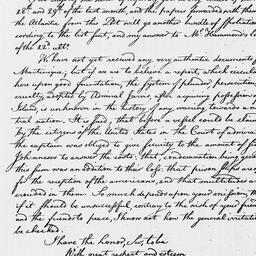 28th and 29th of the last month, and the papers forwarded with them
the Atlantic from this Port will go another bundle of
cording to the list sent, and my answer to Mr. Hammond's
of the 22d ult.
We have not yet received any very authentic documents
Martinique; but if we are to believe a report, which
here upon good foundation, the system of plunder, persecution
cruelty, adopted by Admiral Jervis after acquiring possession
Island, is unknown in the history of any warring towards a
tral nation. It is said, that before a vessel could be claimed
by the citizens of the United States in the Court of admiralty
the captain was obliged to give security to the amount of
Johanneses to answer the costs: that, condemnation being general
this sum was an addition to their loss: that prison ships are
for the reception of the americans, and that multitudes are
crowded in them. So much depends upon your mission, that
if it should be unsuccessful contrary to the wish of your friends
and the friends to peace, I know not how the general irritation
be checked.
I have the honor, Sir, to be
With great respect and esteem